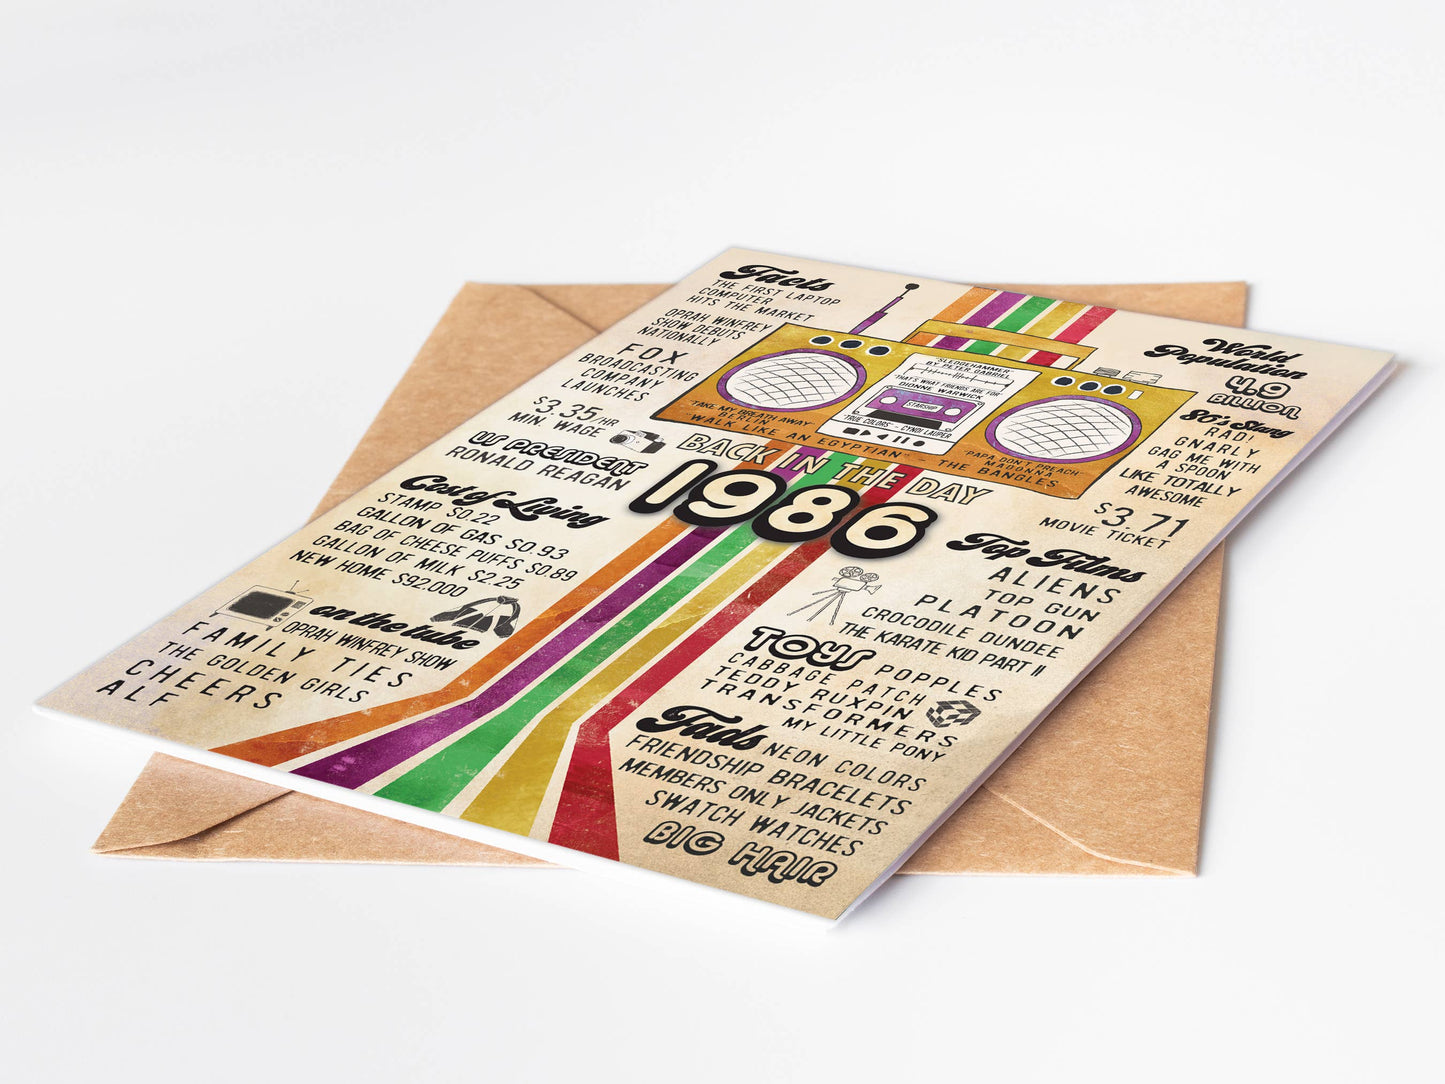 Facts
THE FIRST LAPTOP
COMPUTER
HITS THE MARKET
OPRAH WINFREY
SHOW DEBUTS
NATIONALLY
FOX
BROADCASTING
COMPANY
LAUNCHES
$3.35/HR
MIN. WAGE
US PRESIDENT
RONALD REAGAN
Cost of Living
STAMP $0.22
GALLON OF GAS $0.93
BAG OF CHEESE PUFFS $0.89
GALLON OF MILK $2.25
NEW HOME $92,000
on the tube
OPRAH WINFREY SHOW
FAMILY TIES
THE GOLDEN GIRLS
CHEERS
ALF
"SLEDGEHAMMER"
BY PETER GABRIEL
"THAT'S WHAT FRIENDS ARE FOR"
DIONNE WARWICK
STARSHIP
"TRUE COLORS" - CYNDI LAUPER
"TAKE MY BREATH AWAY"
BERLIN
"WALK LIKE AN EGYPTIAN" - THE BANGLES
"PAPA DON'T PREACH"
MADONNA
BACK IN THE DAY
1986
World
Population
4.9
BILLION
80's Slang
RAD!
GNARLY
GAG ME WITH
A SPOON
LIKE TOTALLY
AWESOME
$3.71
MOVIE TICKET
Top Films
ALIENS
TOP GUN
PLATOON
CROCODILE DUNDEE
THE KARATE KID PART II
TOYS POPPLES
CABBAGE PATCH
TEDDY RUXPIN
TRANSFORMERS
MY LITTLE PONY
Fads NEON COLORS
FRIENDSHIP BRACELETS
MEMBERS ONLY JACKETS
SWATCH WATCHES
BIG HAIR